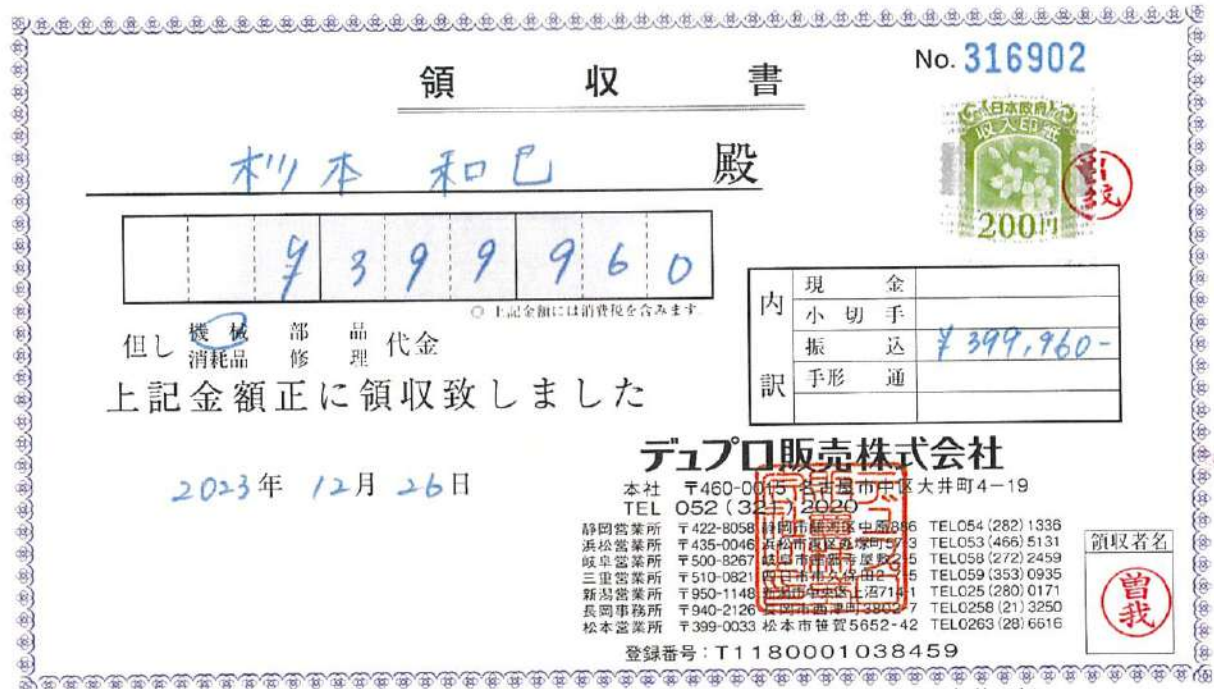 No. 316902
領収書
日本政府
収入印紙
200円
杉本 和巳 殿
¥399960
◎ 上記金額には消費税を含みます
但し 機械 部品 消耗品 修理 代金
上記金額正に領収致しました
内訳
現金
小切手
振込 ¥399,960-
手形 通
2023年 12月 26日
デュプロ販売株式会社
本社 〒460-0015 名古屋市中区大井町4-19
TEL 052(321)2020
静岡営業所 〒422-8058 静岡市駿河区中原886 TEL054(282)1336
浜松営業所 〒435-0046 浜松市 TEL053(466)5131
岐阜営業所 〒500-8267 岐阜市 TEL058(272)2459
三重営業所 〒510-0821 四日市市久保田2 TEL059(353)0935
新潟営業所 〒950-1148 新潟市中央区上沼714-1 TEL025(280)0171
長岡事務所 〒940-2126 長岡市西津町3802-7 TEL0258(21)3250
松本営業所 〒399-0033 松本市笹賀5652-42 TEL0263(28)6616
領収者名
曽我
登録番号:T1180001038459